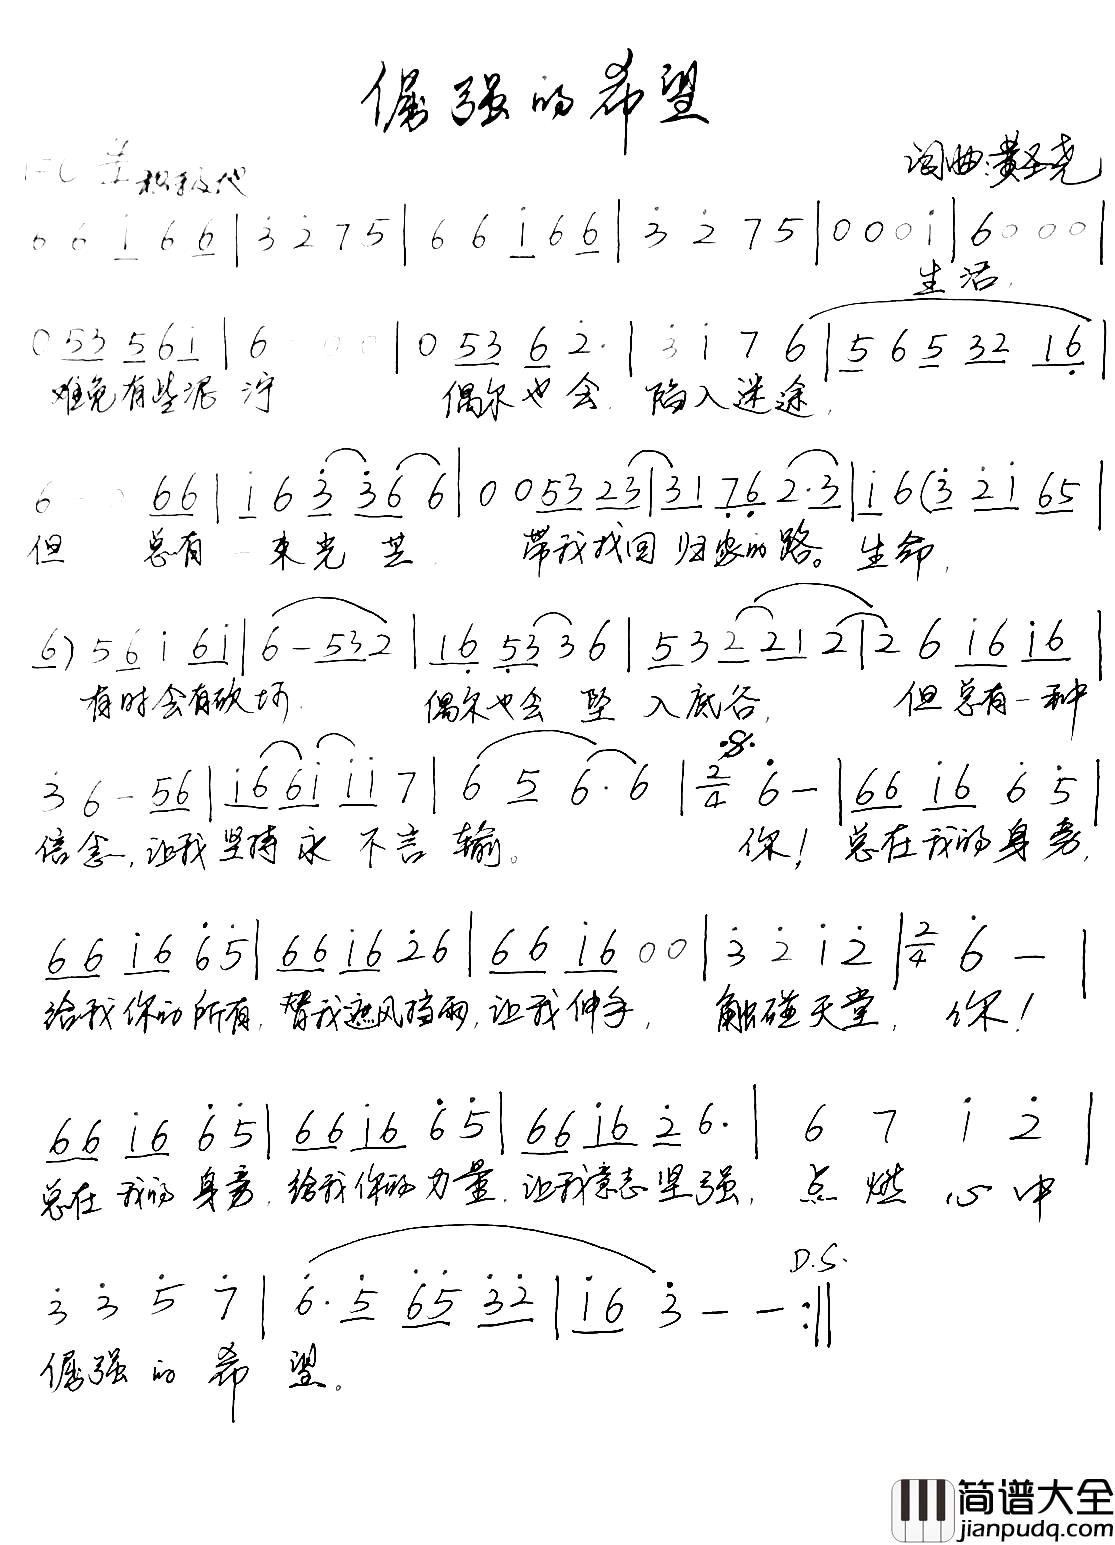 倔强的希望
词曲:黄圣尧
1=C 4/4
6 6 i 6 6 | 3 2 7 5 | 6 6 i 6 6 | 3 2 7 5 | 0 0 0 i | 6 0 0 0 |
生活,
0 53 5 6 i | 6 0 0 | 0 53 6 2· | 3 i 7 6 | 5 6 5 32 16 |
难免有些泥泞 偶尔也会 陷入迷途,
6 0 66 | i 6 3 36 6 | 0 0 53 23 | 31 76 2·3 | i 6 (3 2i 65 |
但 总有一束光芒 带我找回归家的路。生命,
6) 5 6 i 6i | 6 - 532 | 16 53 3 6 | 5 3 2 21 2 | 2 6 i6 i6 |
有时会有砍坷 偶尔也会 坠入底谷, 但总有一种
3 6 - 56 | i6 6i ii 7 | 6 5 6· 6 | 2/4 6 - | 66 i6 6 5 |
信念,让我坚持永不言输。 你! 总在我的身旁,
66 i6 65 | 66 i6 26 | 66 i6 00 | 3 2 i 2 | 2/4 6 - |
给我你的所有,替我遮风挡雨,让我伸手, 触碰天堂, 你!
66 i6 65 | 66 i6 65 | 66 i6 2 6· | 6 7 i 2 |
总在我的身旁,给我你的力量,让我意志坚强,点燃心中
D.S.
3 3 5 7 | 6· 5 65 32 | i6 3 - - :||
倔强的希望。
简谱大全
jianpudq.com